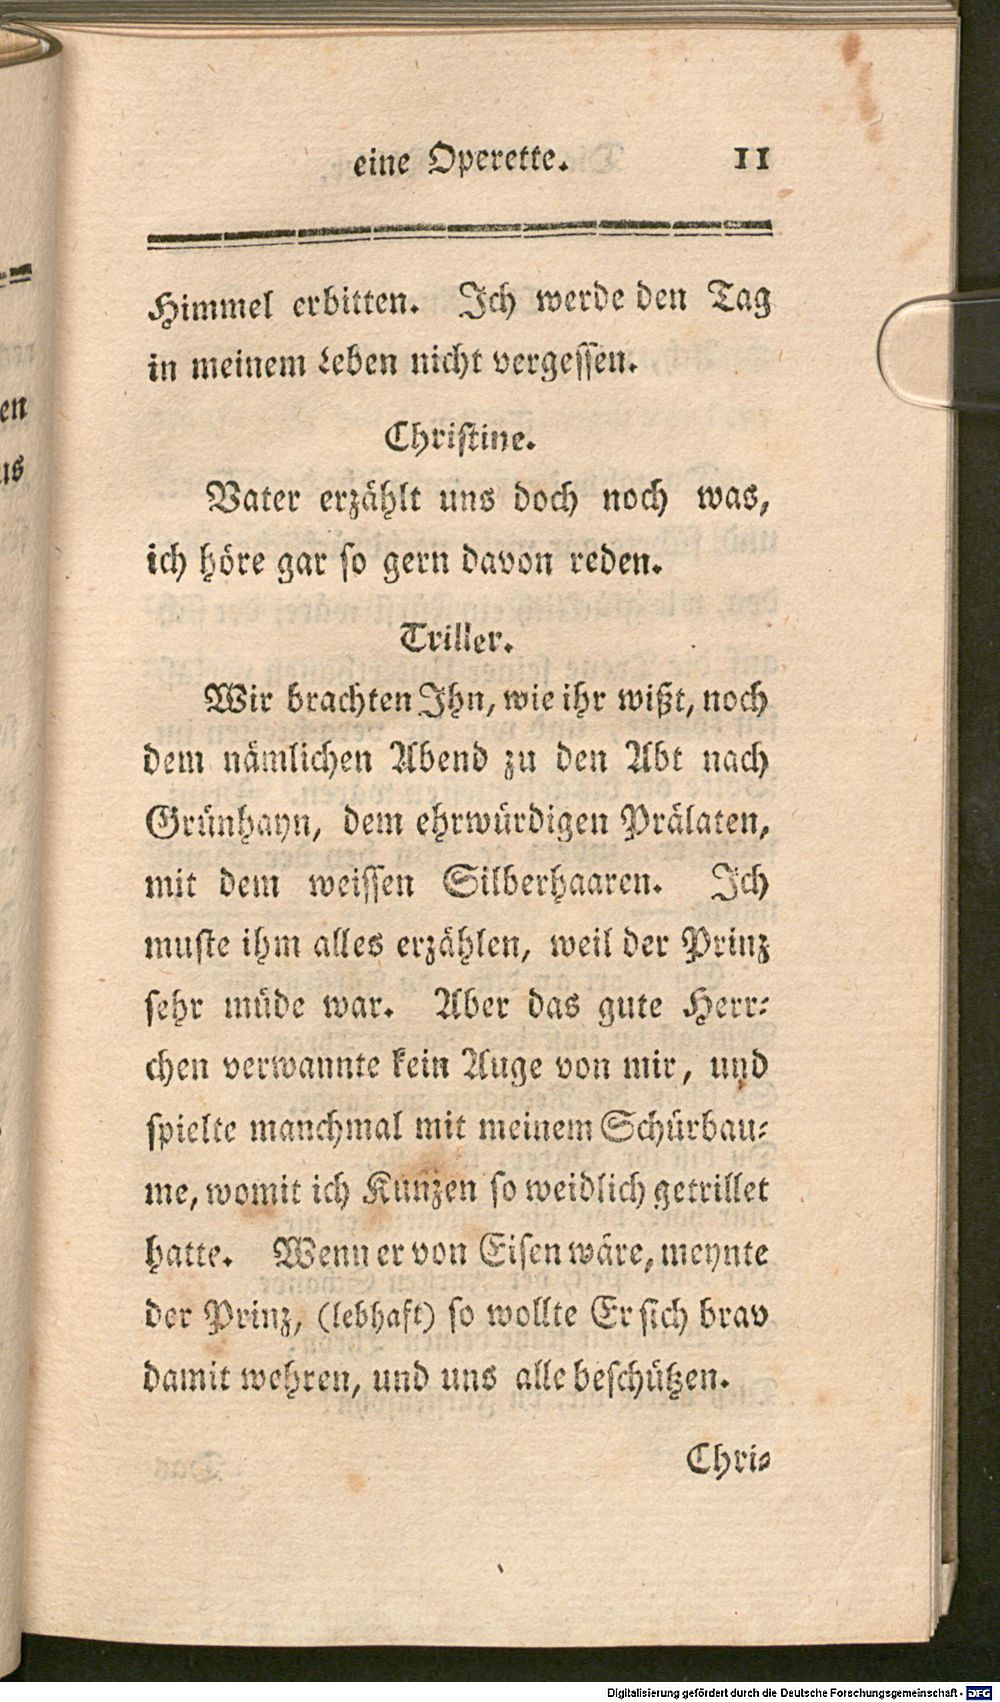 eine Operette. 11
Himmel erbitten. Ich werde den Tag
in meinem Leben nicht vergessen.
Christine.
Vater erzählt uns doch noch was,
ich höre gar so gern davon reden.
Triller.
Wir brachten Ihn, wie ihr wißt, noch
dem nämlichen Abend zu den Abt nach
Grünhayn, dem ehrwürdigen Prälaten,
mit dem weissen Silberhaaren. Ich
muste ihm alles erzählen, weil der Prinz
sehr müde war. Aber das gute Herr-
chen verwannte kein Auge von mir, und
spielte manchmal mit meinem Schürbau-
me, womit ich Kunzen so weidlich getrillet
hatte. Wenn er von Eisen wäre, meynte
der Prinz, (lebhaft) so wollte Er sich brav
damit wehren, und uns alle beschützen.
Chri-
en
us
Digitalisierung gefördert durch die Deutsche Forschungsgemeinschaft - DFG